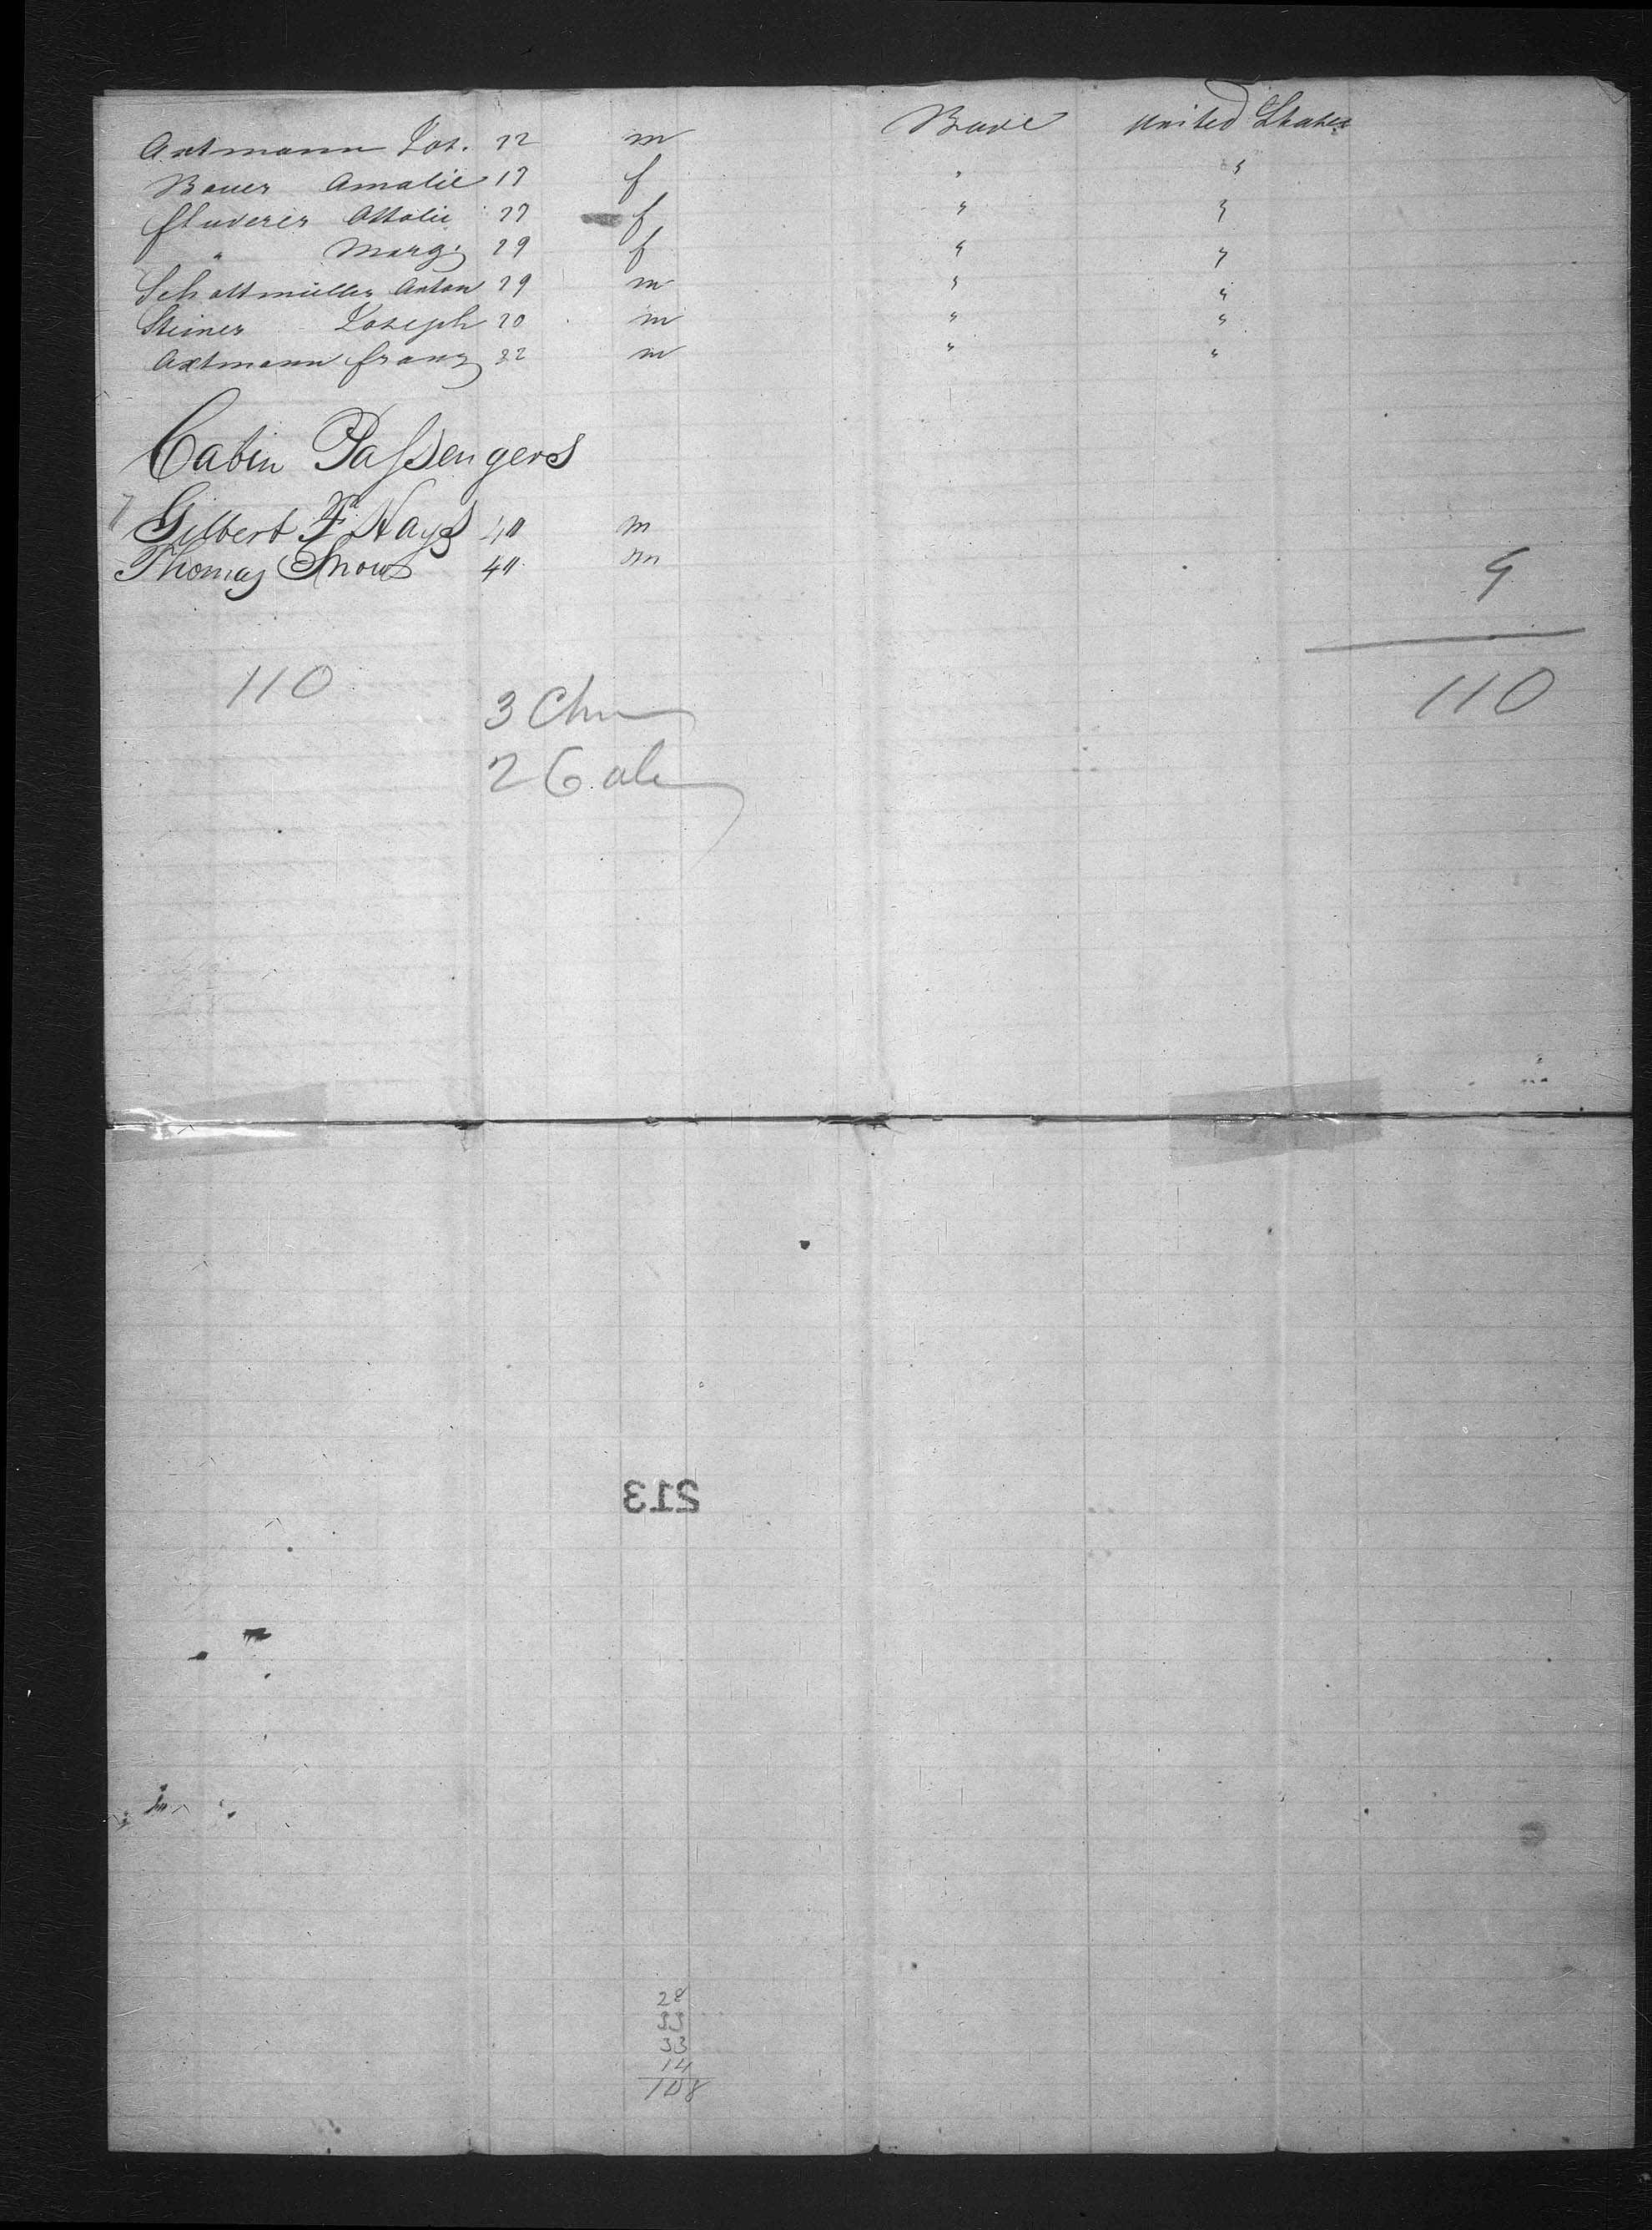 Axtmann Jos. 22 m Bade United States
Bauer Amalie 17 f " "
Fluderer Ottolie 27 f " "
" Marg. 29 f " "
Schottmüller Anton 29 m " "
Steiner Joseph 20 m " "
Axtmann Franz 32 m " "
Cabin Passengers
Gilbert F Hays 40 m
Thomas Snow 40 m
9
110 110
3 Chn
2 Cab
213
28
33
33
14
108